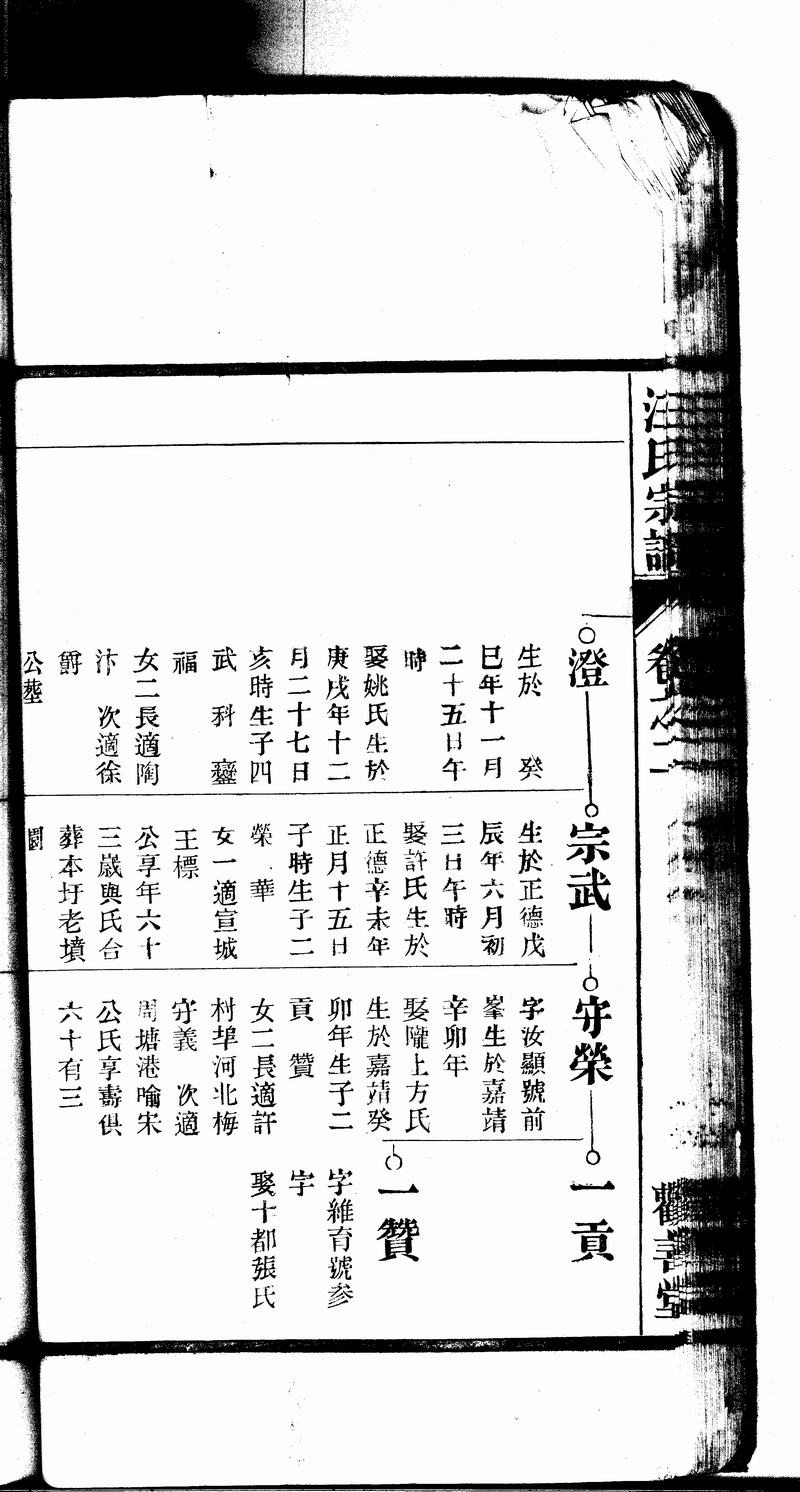 汪氏宗譜
卷之二
勸善堂
澄
生於　癸
巳年十一月
二十五日午
時
娶姚氏生於
庚戌年十二
月二十七日
亥時生子四
武　科　鑾
福
女二長適陶
汴　次適徐
爵
公塟
宗武
生於正德戊
辰年六月初
三日午時
娶許氏生於
正德辛未年
正月十五日
子時生子二
榮　華
女一適宣城
王標
公享年六十
三歲與氏合
葬本圩老墳
守榮
字汝顯號前
峯生於嘉靖
辛卯年
娶隴上方氏
生於嘉靖癸
卯年生子二
貢　贊
女二長適許
村埠河北梅
守義　次適
周塘港喻宋
公氏享壽俱
六十有三
一貢
一贊
字維育號參
宇
娶十都張氏